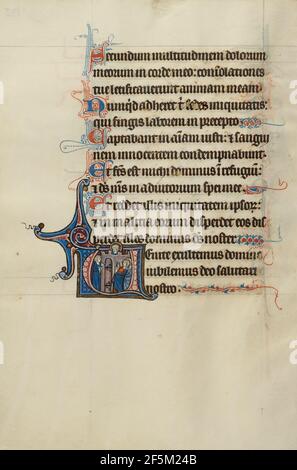 Secundum multitudinem dolorum
meorum in corde meo: consolationes
tue letificaverunt animam meam.
Nunquid adheret t̄ sedes iniquitatis:
qui fingis laborem in precepto
Captabunt in aīam iusti: ⁊ sangui
nem innocentem condempnabunt.
Et fc̄s est michi dominus in refugiū:
⁊ ds̄ ms̄ in adiutorium spei mee.
Et reddet illis iniquitatem ipsoꝝ:
⁊ in malicia eorum disperdet eos dis
perdet illos dominus ds̄ noster
Venite exultemus domino
iubilemus deo salutari
nostro.
alamy
Image ID: 2F5M24B
www.alamy.com